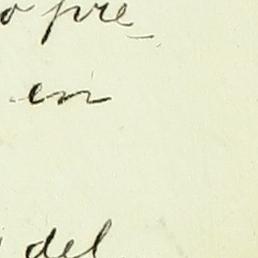 o pre_
en
del